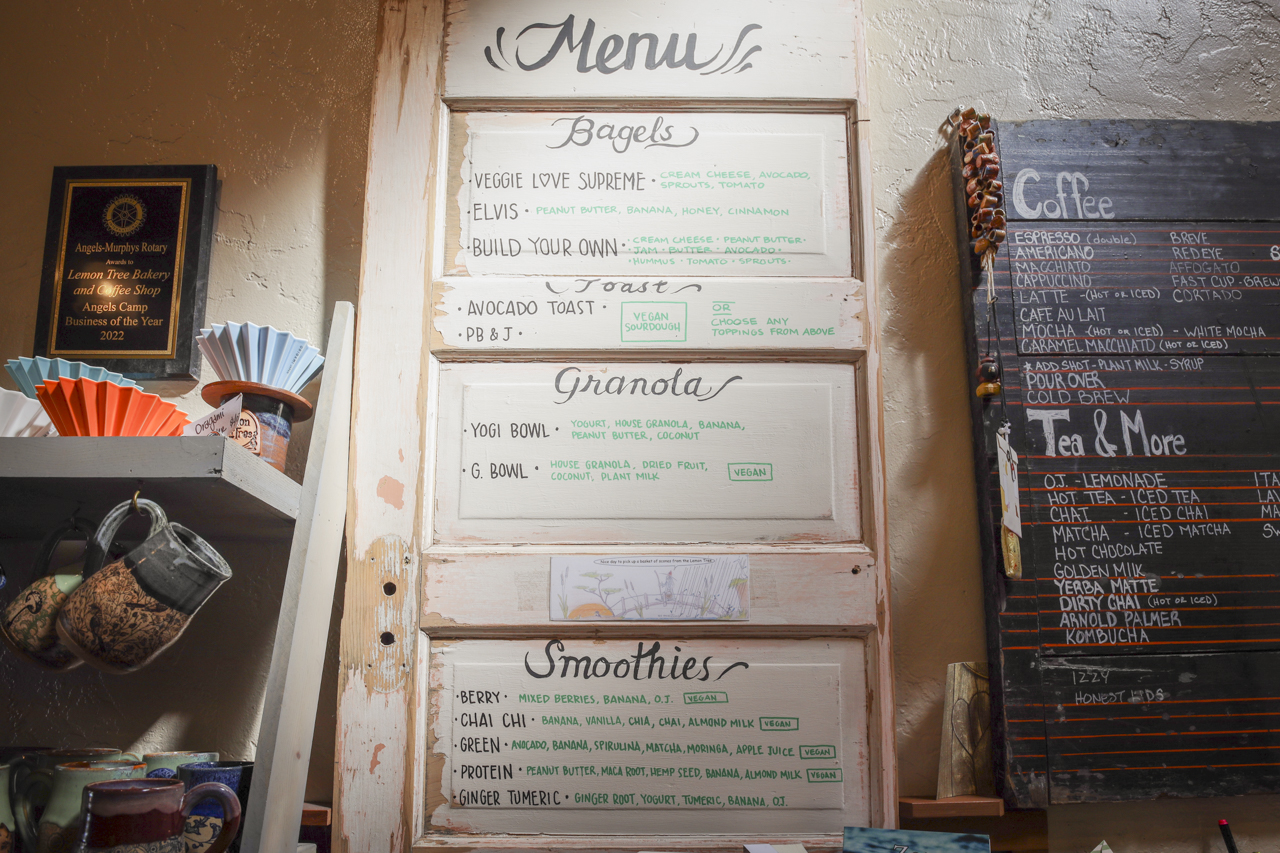 Menu
Bagels
·VEGGIE LOVE SUPREME· CREAM CHEESE, AVOCADO,
SPROUTS, TOMATO
·ELVIS· PEANUT BUTTER, BANANA, HONEY, CINNAMON
·BUILD YOUR OWN· ·CREAM CHEESE·PEANUT BUTTER·
·JAM·BUTTER·AVOCADO·
·HUMMUS·TOMATO·SPROUTS·
Toast
·AVOCADO TOAST·
·PB & J·
VEGAN
SOURDOUGH
OR
CHOOSE ANY
TOPPINGS FROM ABOVE
Granola
·YOGI BOWL· YOGURT, HOUSE GRANOLA, BANANA,
PEANUT BUTTER, COCONUT
·G. BOWL· HOUSE GRANOLA, DRIED FRUIT,
COCONUT, PLANT MILK
VEGAN
Smoothies
·BERRY· MIXED BERRIES, BANANA, O.J. VEGAN
·CHAI CHI· BANANA, VANILLA, CHIA, CHAI, ALMOND MILK VEGAN
·GREEN· AVOCADO, BANANA, SPIRULINA, MATCHA, MORINGA, APPLE JUICE VEGAN
·PROTEIN· PEANUT BUTTER, MACA ROOT, HEMP SEED, BANANA, ALMOND MILK VEGAN
·GINGER TUMERIC· GINGER ROOT, YOGURT, TUMERIC, BANANA, OJ.
Angels-Murphys Rotary
Awards to
Lemon Tree Bakery
and Coffee Shop
Angels Camp
Business of the Year
2022
Coffee
ESPRESSO (double)
AMERICANO
MACCHIATO
CAPPUCCINO
LATTE -(HOT OR ICED)
CAFE AU LAIT
MOCHA (HOT OR ICED) - WHITE MOCHA
CARAMEL MACCHIATO (HOT OR ICED)
BREVE
REDEYE
AFFOGATO
FAST CUP-BREW
CORTADO
*ADD SHOT-PLANT MILK-SYRUP
POUR OVER
COLD BREW
Tea & More
O.J. - LEMONADE
HOT TEA - ICED TEA
CHAI - ICED CHAI
MATCHA - ICED MATCHA
HOT CHOCOLATE
GOLDEN MILK
YERBA MATTE
DIRTY CHAI (HOT OR ICED)
ARNOLD PALMER
KOMBUCHA